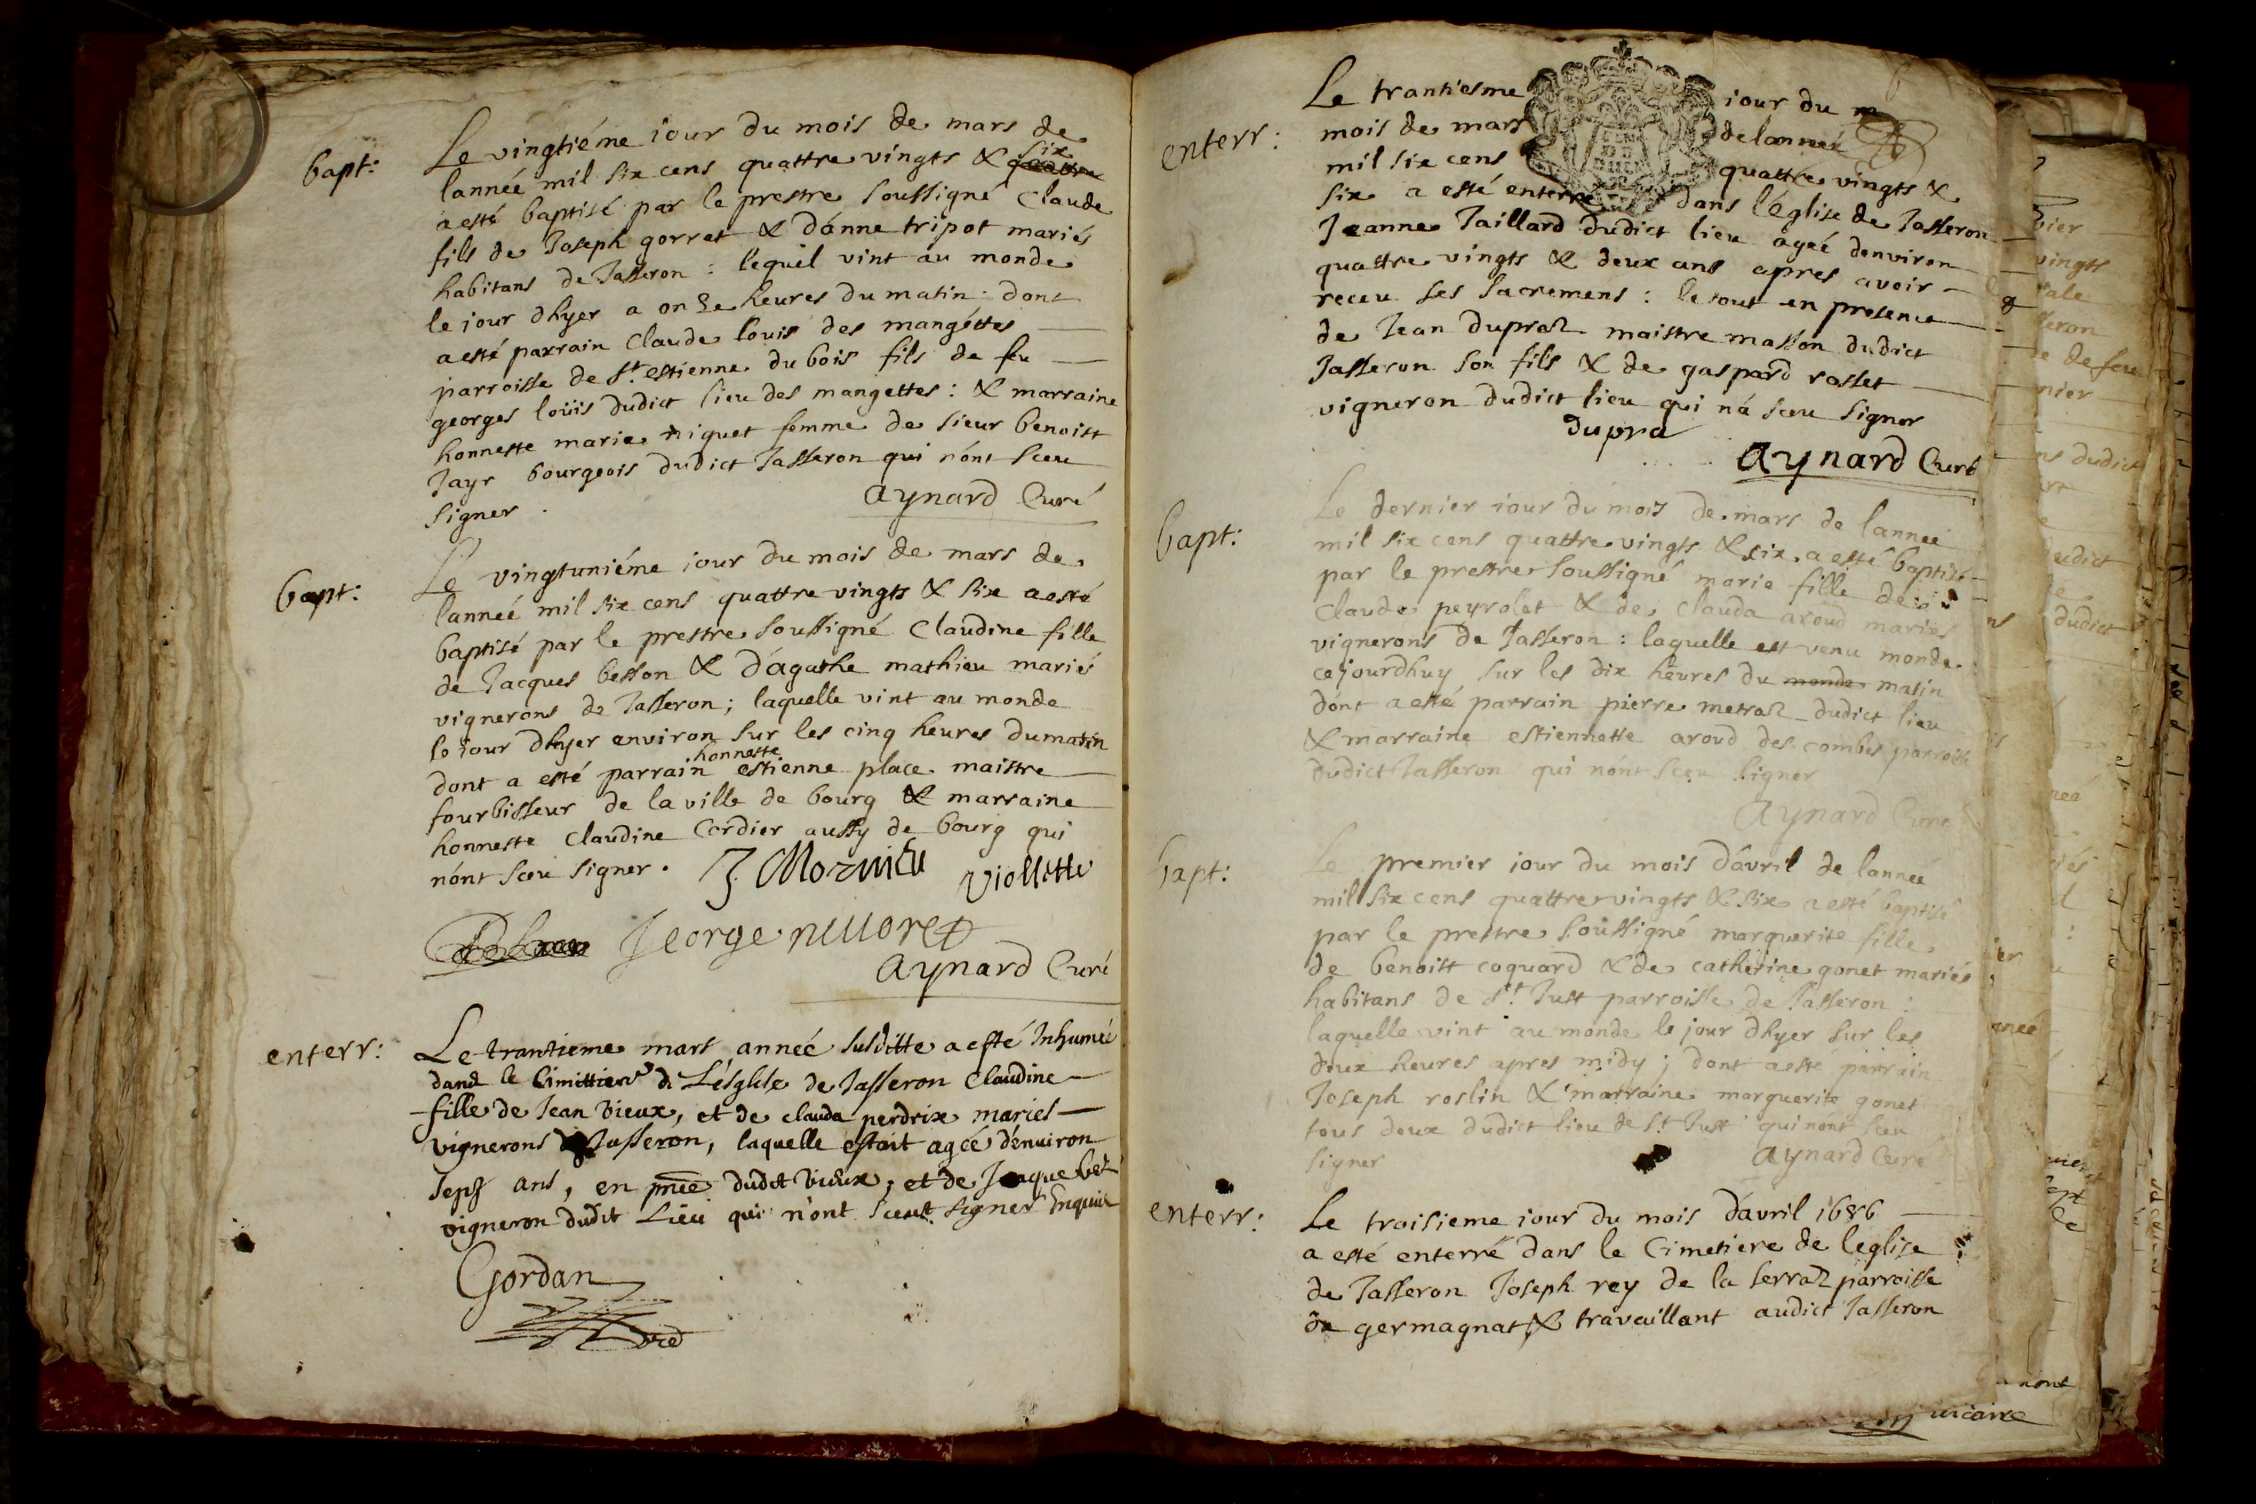 bapt:
Le vingtiéme iour du mois de mars de
lanneé mil six cens quattre vingts & quattre six
a esté baptisé par le prestre soussigné Claude
fils de Joseph gorret & dánne tripot mariés
habitans de Jasseron : lequel vint au monde
le iour dhyer a onze heures du matin : dont
a esté parrain Claude louis des mangéttes
parroisse de st. estienne du bois fils de feu
georges loüis dudict lieu des mangettes : & marraine
honneste marie niquet femme de sieur benoist
Jayr bourgeois dudict Jasseron qui nónt sceu
signer .
Aynard Curé
bapt:
Le vingtuniéme iour du mois de mars de
lanneé mil six cens quattre vingts & six a esté
baptisé par le prestre soussigné Claudine fille
de Jacques besson & dágathe mathieu mariés
vignerons de Jasseron ; laquelle vint au monde
le iour dhyer environ sur les cinq heures du matin
dont a esté parrain honneste estienne place maistre
fourbisseur de la ville de bourg & marraine
honneste Claudine Cordier aussy de bourg qui
nónt sceu signer .
J. Mornieu Viollette
George
Aynard Curé
enterr:
Le trantieme mars anneé susditte a esté Inhumeé
dans le Cimittiere de Lésglise de Jasseron Claudine
fille de Jean vieux, et de clauda perdrix mariés
vignerons de Jasseron, laquelle estoit agée dénuiron
sept ans, en pnce dudit vieux, et de Jaque
vigneron dudit Lieu qui nónt sceut signer Enquis
Gordan
enterr:
Le trantiesme iour du m
mois de mars de lanneé
mil six cens quattre vingts &
six a esté enterré dans lÉglise de Jasseron
Jeanne Jaillard dudict lieu ageé denviron
quattre vingts & deux ans apres avoir
receu ses sacremens : le tout en presence
de Jean dupraz maistre masson dudict
Jasseron son fils & de gaspard rosset
vigneron dudict lieu qui ná sceu signer
dupra
Aynard Curé
bapt:
Le dernier iour du mois de mars de lanneé
mil six cens quattre vingts & six a esté baptisé
par le prestre soussigné marie fille de
Claude peyrolet & de Clauda aroud mariés
vignerons de Jasseron : laquelle est venu monde
cejourdhuy sur les dix heures du monde matin
dónt a esté parrain pierre metraz dudict lieu
& marraine estiennette aroud des combes parroisse
dudict Jasseron qui nónt sceu signer
Aynard Curé
bapt:
Le premier iour du mois dávril de lanneé
mil six cens quattre vingts & six a esté baptisé
par le prestre soussigné marguerite fille
de benoist coquard & de catherine gonet mariés
habitans de st. Just parroisse de Jasseron :
laquelle vint au monde le jour dhyer sur les
deux heures apres midy ; dont a esté parrain
Joseph roslin & marraine marguerite gonet
tous deux dudict lieu de st. Just qui nónt sceu
signer
Aynard Curé
enterr:
Le troisieme iour du mois dávril 1686
a esté enterré dans le Cimetiere de leglise
de Jasseron Joseph rey de la serraz parroisse
de germagnat & travaillant audict Jasseron
vicaire